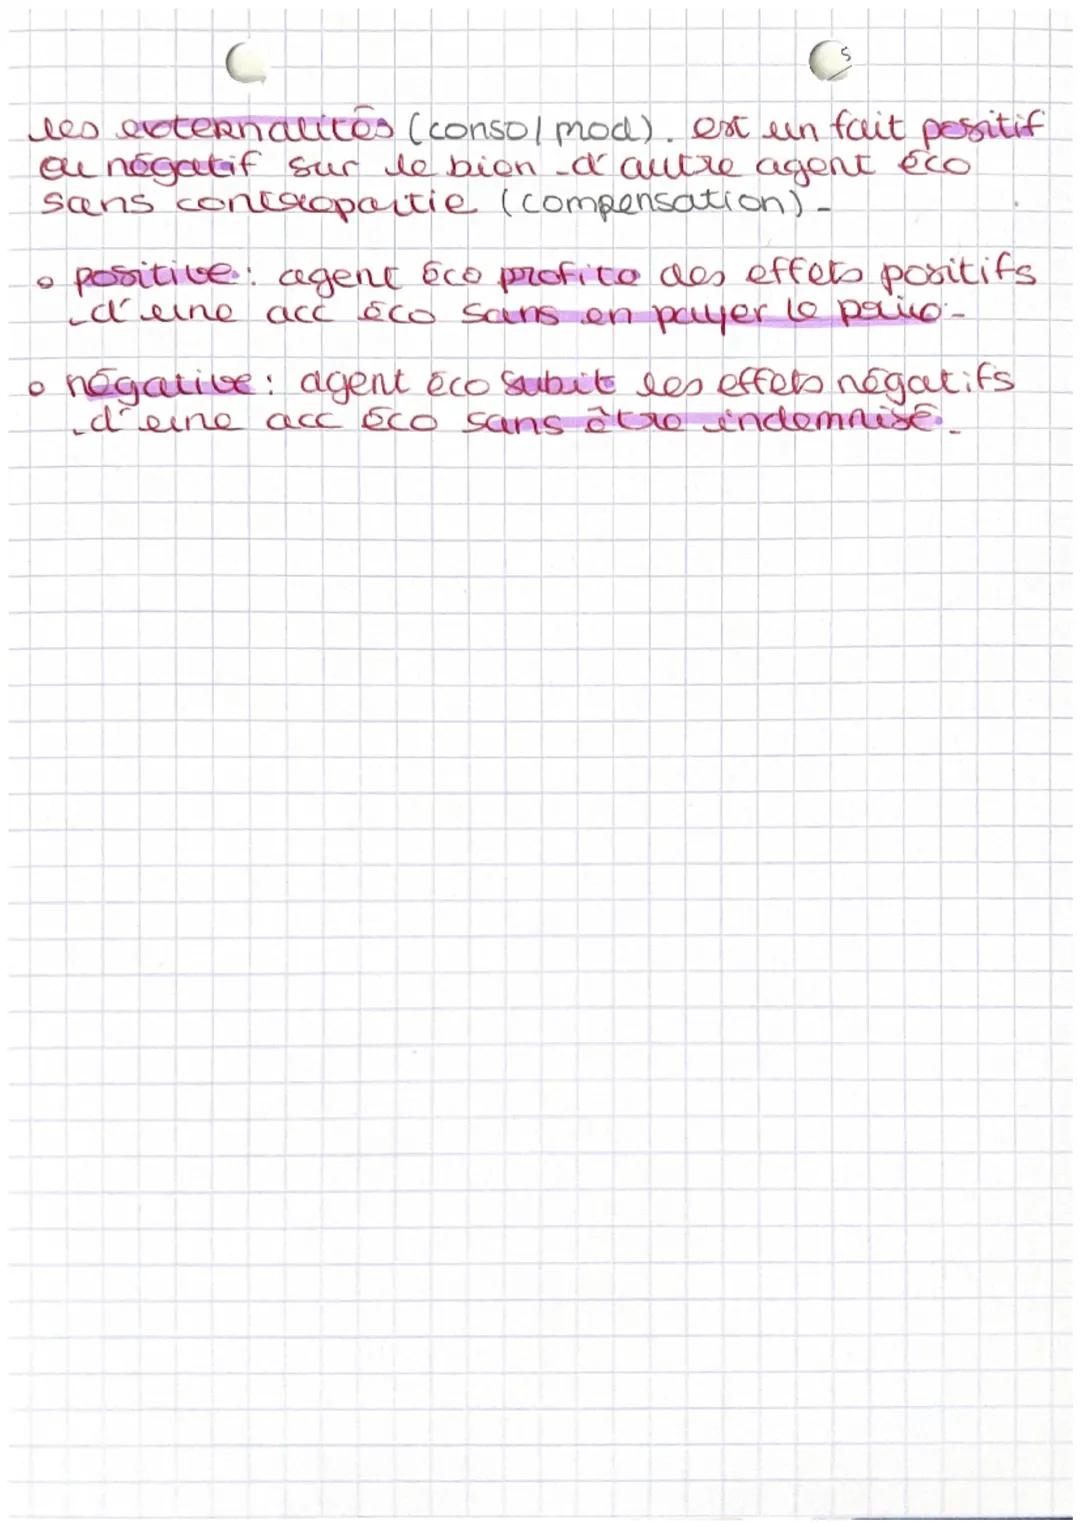 5
les externalités (conso/prod). est un fait positif
ou négatif sur le bien d'autre agent éco
sans contrepartie (compensation).
positive : agent éco profite des effets positifs
d'une acc éco sans en payer le prix.
négative : agent éco subit les effets négatifs
d'une acc éco sans être indemnisé.